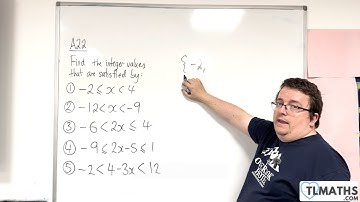 A22
Find the integer values
that are satisfied by:
① -2 ≤ x < 4
② -12 < x < -9
③ -6 < 2x ≤ 4
④ -9 ≤ 2x-5 ≤ 1
⑤ -2 < 4-3x < 12
{ -2,
TLMATHS